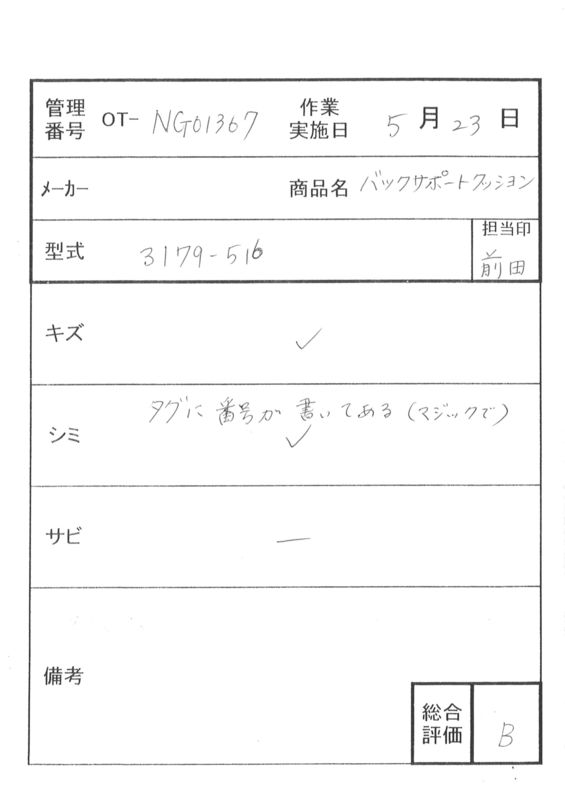 管理番号 OT- NG01367 作業実施日 5月23日
メーカー 商品名 バックサポートクッション
型式 3179-516 担当印 前田
キズ ✓
シミ タグに番号が書いてある(マジックで)
✓
サビ —
備考
総合評価 B